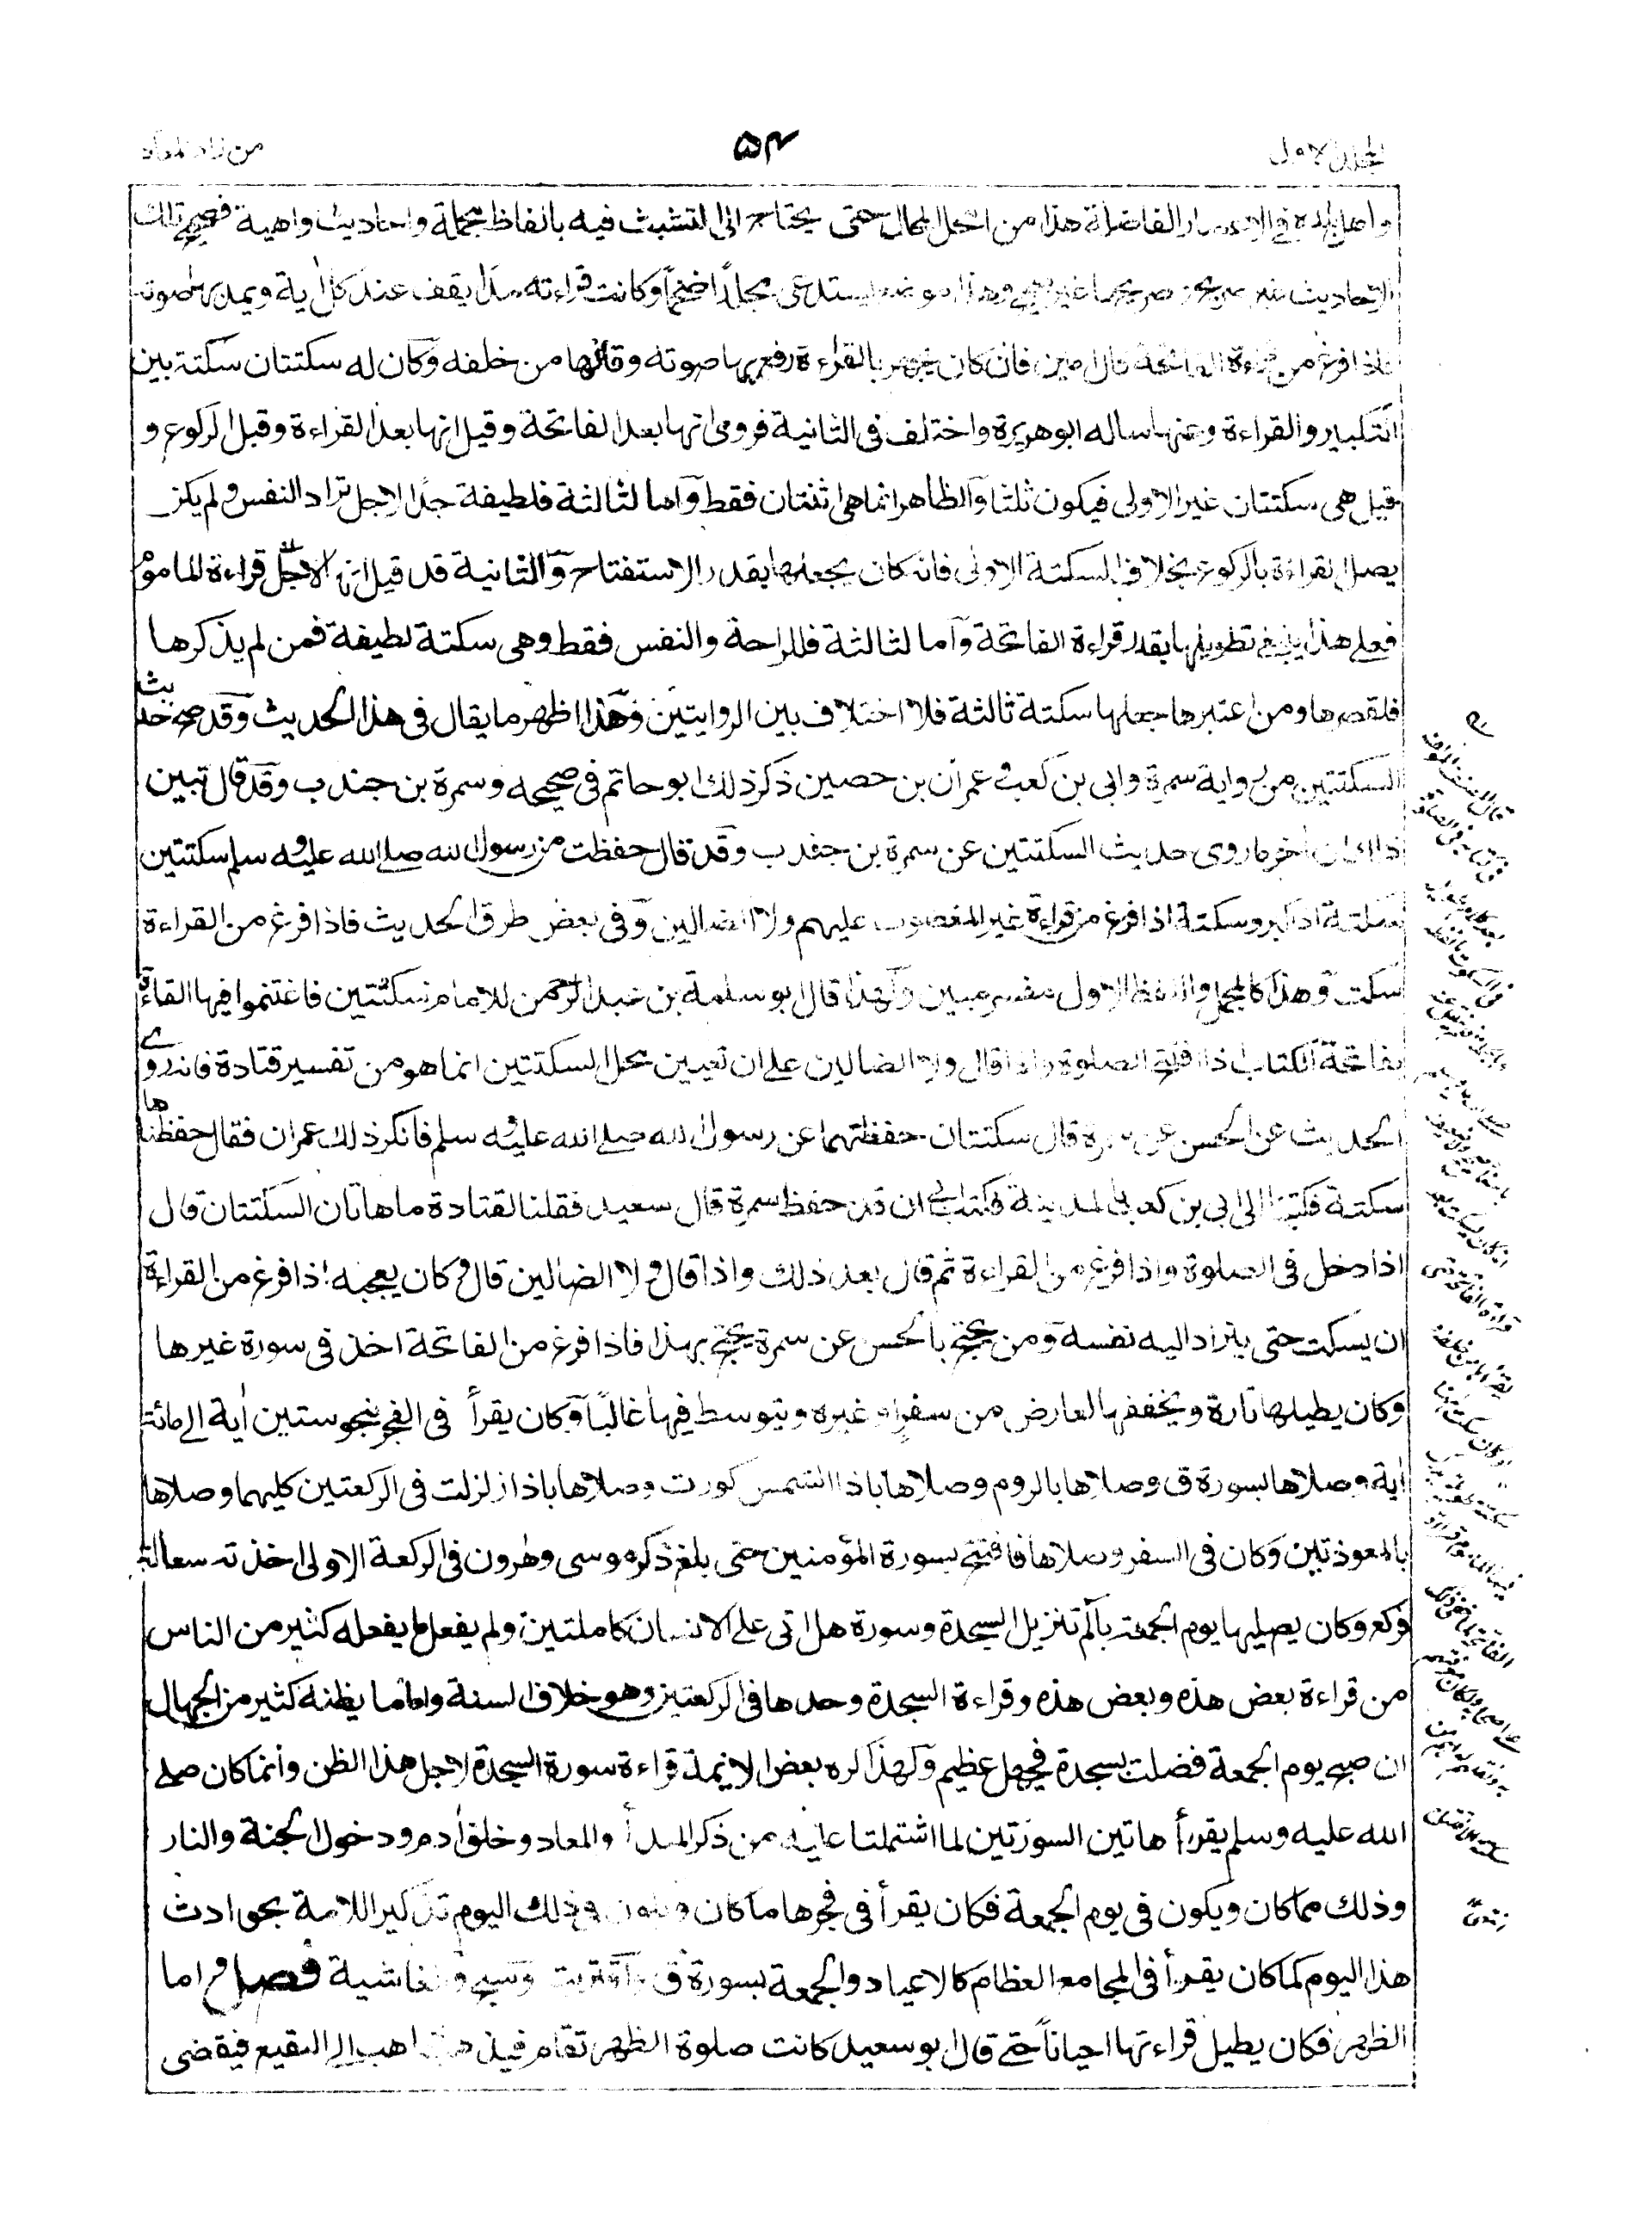 الجلد الاول
۵۴
من زاد المعاد
واهل بلده في الاعصار الفاضلة هذا من امحل المحال حتى يحتاج الى التشبث فيه بالفاظ مجملة واحاديث واهية فصحيح تلك
الاحاديث غير صريح وصريحها غير صحيح وهذا موضع يستدعى مجلدًا ضخمًا وكانت قراءته مدًّا يقف عند كل أية ويمد بها صوته
فاذا فرغ من قراءة الفاتحة قال امين فان كان يجهر بالقراءة رفع بها صوته وقالها من خلفه وكان له سكتتان سكتة بين
التكبير والقراءة وعنها ساله ابو هريرة واختلف فى الثانية فروى انها بعد الفاتحة وقيل انها بعد القراءة وقبل الركوع و
قيل هى سكتتان غير الاولى فيكون ثلثا والظاهر انما هى اثنتان فقط واما الثالثة فلطيفة جدًا لاجل تراد النفس ولم يكن
يصل القراءة بالركوع بخلاف السكتة الاولى فانه كان يجعلها بقدر الاستفتاح والثانية قد قيل انها لاجل قراءة الماموم
فعلى هذا ينبغي تطويلها بقدر قراءة الفاتحة واما الثالثة فللراحة والنفس فقط وهى سكتة لطيفة فمن لم يذكرها
فلقصرها ومن اعتبرها جعلها سكتة ثالثة فلا اختلاف بين الروايتين وهذا اظهر ما يقال فى هذا الحديث وقد صح حديث
السكتتين من رواية سمرة وابى بن كعب وعمران بن حصين ذكر ذلك ابو حاتم فى صحيحه وسمرة بن جندب وقد قال تبين
ذلك ان اخر ما روى حديث السكتتين عن سمرة بن جندب وقد قال حفظت من رسول الله صلى الله عليه وسلم سكتتين
سكتة اذا كبر وسكتة اذا فرغ من قراءة غير المغضوب عليهم ولا الضالين وفى بعض طرق الحديث فاذا فرغ من القراءة
سكت وهذا كالمجمل واللفظ الاول مفسر مبين ولهذا قال ابو سلمة بن عبد الرحمن للامام سكتتين فاغتنموا فيها القراءة
بفاتحة الكتاب اذا افتتح الصلوة واذا قال ولا الضالين على ان تعيين محل السكتتين انما هو من تفسير قتادة فانه روى
الحديث عن الحسن عن سمرة قال سكتتان حفظتهما عن رسول الله صلى الله عليه وسلم فانكر ذلك عمران فقال حفظناها
سكتة فكتبنا الى ابى بن كعب بالمدينة فكتب ابى ان قد حفظ سمرة قال سعيد فقلنا لقتادة ما هاتان السكتتان قال
اذا دخل فى الصلوة واذا فرغ من القراءة ثم قال بعد ذلك واذا قال ولا الضالين قال وكان يعجبه اذا فرغ من القراءة
ان يسكت حتى يتراد اليه نفسه ومن يحتج بالحسن عن سمرة يحتج بهذا فاذا فرغ من الفاتحة اخذ فى سورة غيرها
وكان يطيلها تارة ويخففها لعارض من سفر او غيره ويتوسط فيها غالبًا وكان يقرأ فى الفجر بنحو ستين أية الى مائة
أية وصلاها بسورة ق وصلاها بالروم وصلاها باذا الشمس كورت وصلاها باذا زلزلت فى الركعتين كليهما وصلاها
بالمعوذتين وكان فى السفر وصلاها فافتتح بسورة المؤمنين حتى بلغ ذكر موسى وهرون فى الركعة الاولى اخذته سعلة
فركع وكان يصليها يوم الجمعة بالم تنزيل السجدة وسورة هل اتى على الانسان كاملتين ولم يفعل ما يفعله كثير من الناس
من قراءة بعض هذه وبعض هذه وقراءة السجدة وحدها فى الركعتين وهو خلاف السنة واما ما يظنه كثير من الجهال
ان صبح يوم الجمعة فضلت بسجدة فجهل عظيم ولهذا كره بعض الائمة قراءة سورة السجدة لاجل هذا الظن وانما كان صلى
الله عليه وسلم يقرأ هاتين السورتين لما اشتملتا عليه من ذكر المبدأ والمعاد وخلق أدم ودخول الجنة والنار
وذلك مما كان ويكون فى يوم الجمعة فكان يقرأ فى فجرها ما كان ويكون فى ذلك اليوم تذكيرا للامة بحوادث
هذا اليوم كما كان يقرأ فى المجامع العظام كالاعياد والجمعة بسورة ق واقتربت وسبح والغاشية فصل واما
الظهر فكان يطيل قراءتها احيانًا حتى قال ابو سعيد كانت صلوة الظهر تقام فيذهب الذاهب الى البقيع فيقضى